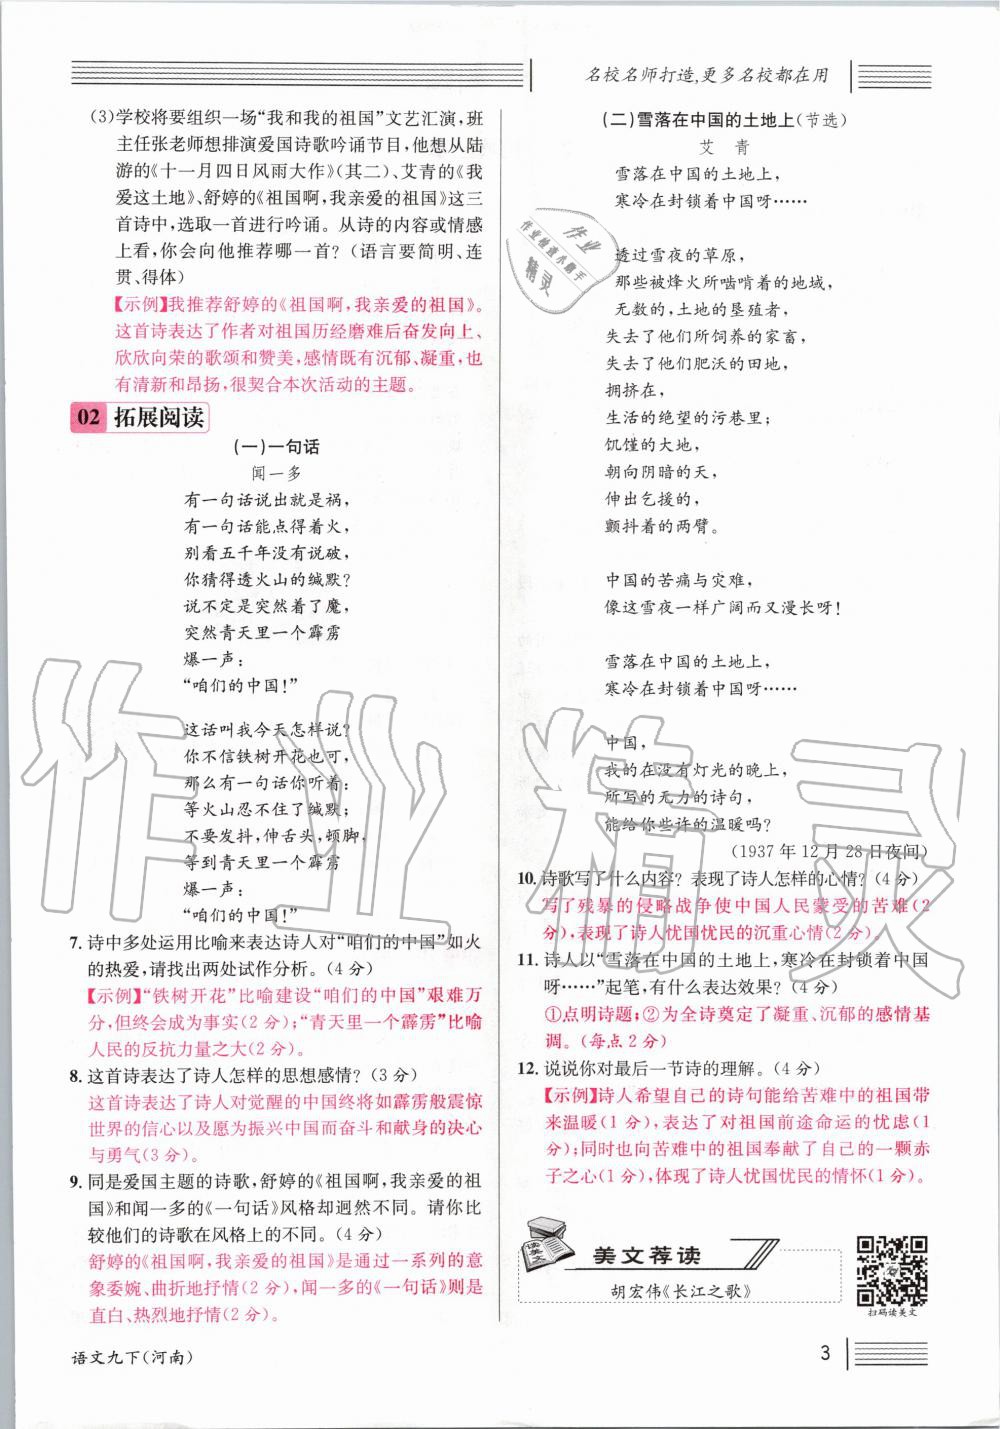 名校名师打造,更多名校都在用
(3)学校将要组织一场“我和我的祖国”文艺汇演,班
主任张老师想排演爱国诗歌吟诵节目,他想从陆
游的《十一月四日风雨大作》(其二)、艾青的《我
爱这土地》、舒婷的《祖国啊,我亲爱的祖国》这三
首诗中,选取一首进行吟诵。从诗的内容或情感
上看,你会向他推荐哪一首?(语言要简明、连
贯、得体)
【示例】我推荐舒婷的《祖国啊,我亲爱的祖国》。
这首诗表达了作者对祖国历经磨难后奋发向上、
欣欣向荣的歌颂和赞美,感情既有沉郁、凝重,也
有清新和昂扬,很契合本次活动的主题。
02 拓展阅读
(一)一句话
闻一多
有一句话说出就是祸,
有一句话能点得着火,
别看五千年没有说破,
你猜得透火山的缄默?
说不定是突然着了魔,
突然青天里一个霹雳
爆一声:
“咱们的中国!”
这话叫我今天怎样说?
你不信铁树开花也可,
那么有一句话你听着:
等火山忍不住了缄默,
不要发抖,伸舌头,顿脚,
等到青天里一个霹雳
爆一声:
“咱们的中国!”
7. 诗中多处运用比喻来表达诗人对“咱们的中国”如火
的热爱,请找出两处试作分析。(4分)
【示例】“铁树开花”比喻建设“咱们的中国”艰难万
分,但终会成为事实(2分);“青天里一个霹雳”比喻
人民的反抗力量之大(2分)。
8. 这首诗表达了诗人怎样的思想感情?(3分)
这首诗表达了诗人对觉醒的中国终将如霹雳般震惊
世界的信心以及愿为振兴中国而奋斗和献身的决心
与勇气(3分)。
9. 同是爱国主题的诗歌,舒婷的《祖国啊,我亲爱的祖
国》和闻一多的《一句话》风格却迥然不同。请你比
较他们的诗歌在风格上的不同。(4分)
舒婷的《祖国啊,我亲爱的祖国》是通过一系列的意
象委婉、曲折地抒情(2分),闻一多的《一句话》则是
直白、热烈地抒情(2分)。
(二)雪落在中国的土地上(节选)
艾 青
雪落在中国的土地上,
寒冷在封锁着中国呀……
透过雪夜的草原,
那些被烽火所啮啃着的地域,
无数的,土地的垦殖者,
失去了他们所饲养的家畜,
失去了他们肥沃的田地,
拥挤在,
生活的绝望的污巷里;
饥馑的大地,
朝向阴暗的天,
伸出乞援的,
颤抖着的两臂。
中国的苦痛与灾难,
像这雪夜一样广阔而又漫长呀!
雪落在中国的土地上,
寒冷在封锁着中国呀……
中国,
我的在没有灯光的晚上,
所写的无力的诗句,
能给你些许的温暖吗?
(1937年12月28日夜间)
10. 诗歌写了什么内容?表现了诗人怎样的心情?(4分)
写了残暴的侵略战争使中国人民蒙受的苦难(2
分),表现了诗人忧国忧民的沉重心情(2分)。
11. 诗人以“雪落在中国的土地上,寒冷在封锁着中国
呀……”起笔,有什么表达效果?(4分)
①点明诗题;②为全诗奠定了凝重、沉郁的感情基
调。(每点2分)
12. 说说你对最后一节诗的理解。(4分)
【示例】诗人希望自己的诗句能给苦难中的祖国带
来温暖(1分),表达了对祖国前途命运的忧虑(1
分);同时也向苦难中的祖国奉献了自己的一颗赤
子之心(1分),体现了诗人忧国忧民的情怀(1分)。
读美文
美文荐读
胡宏伟《长江之歌》
扫码读美文
语文九下(河南)
3
作业精灵
作业
作业检查小助手
精灵